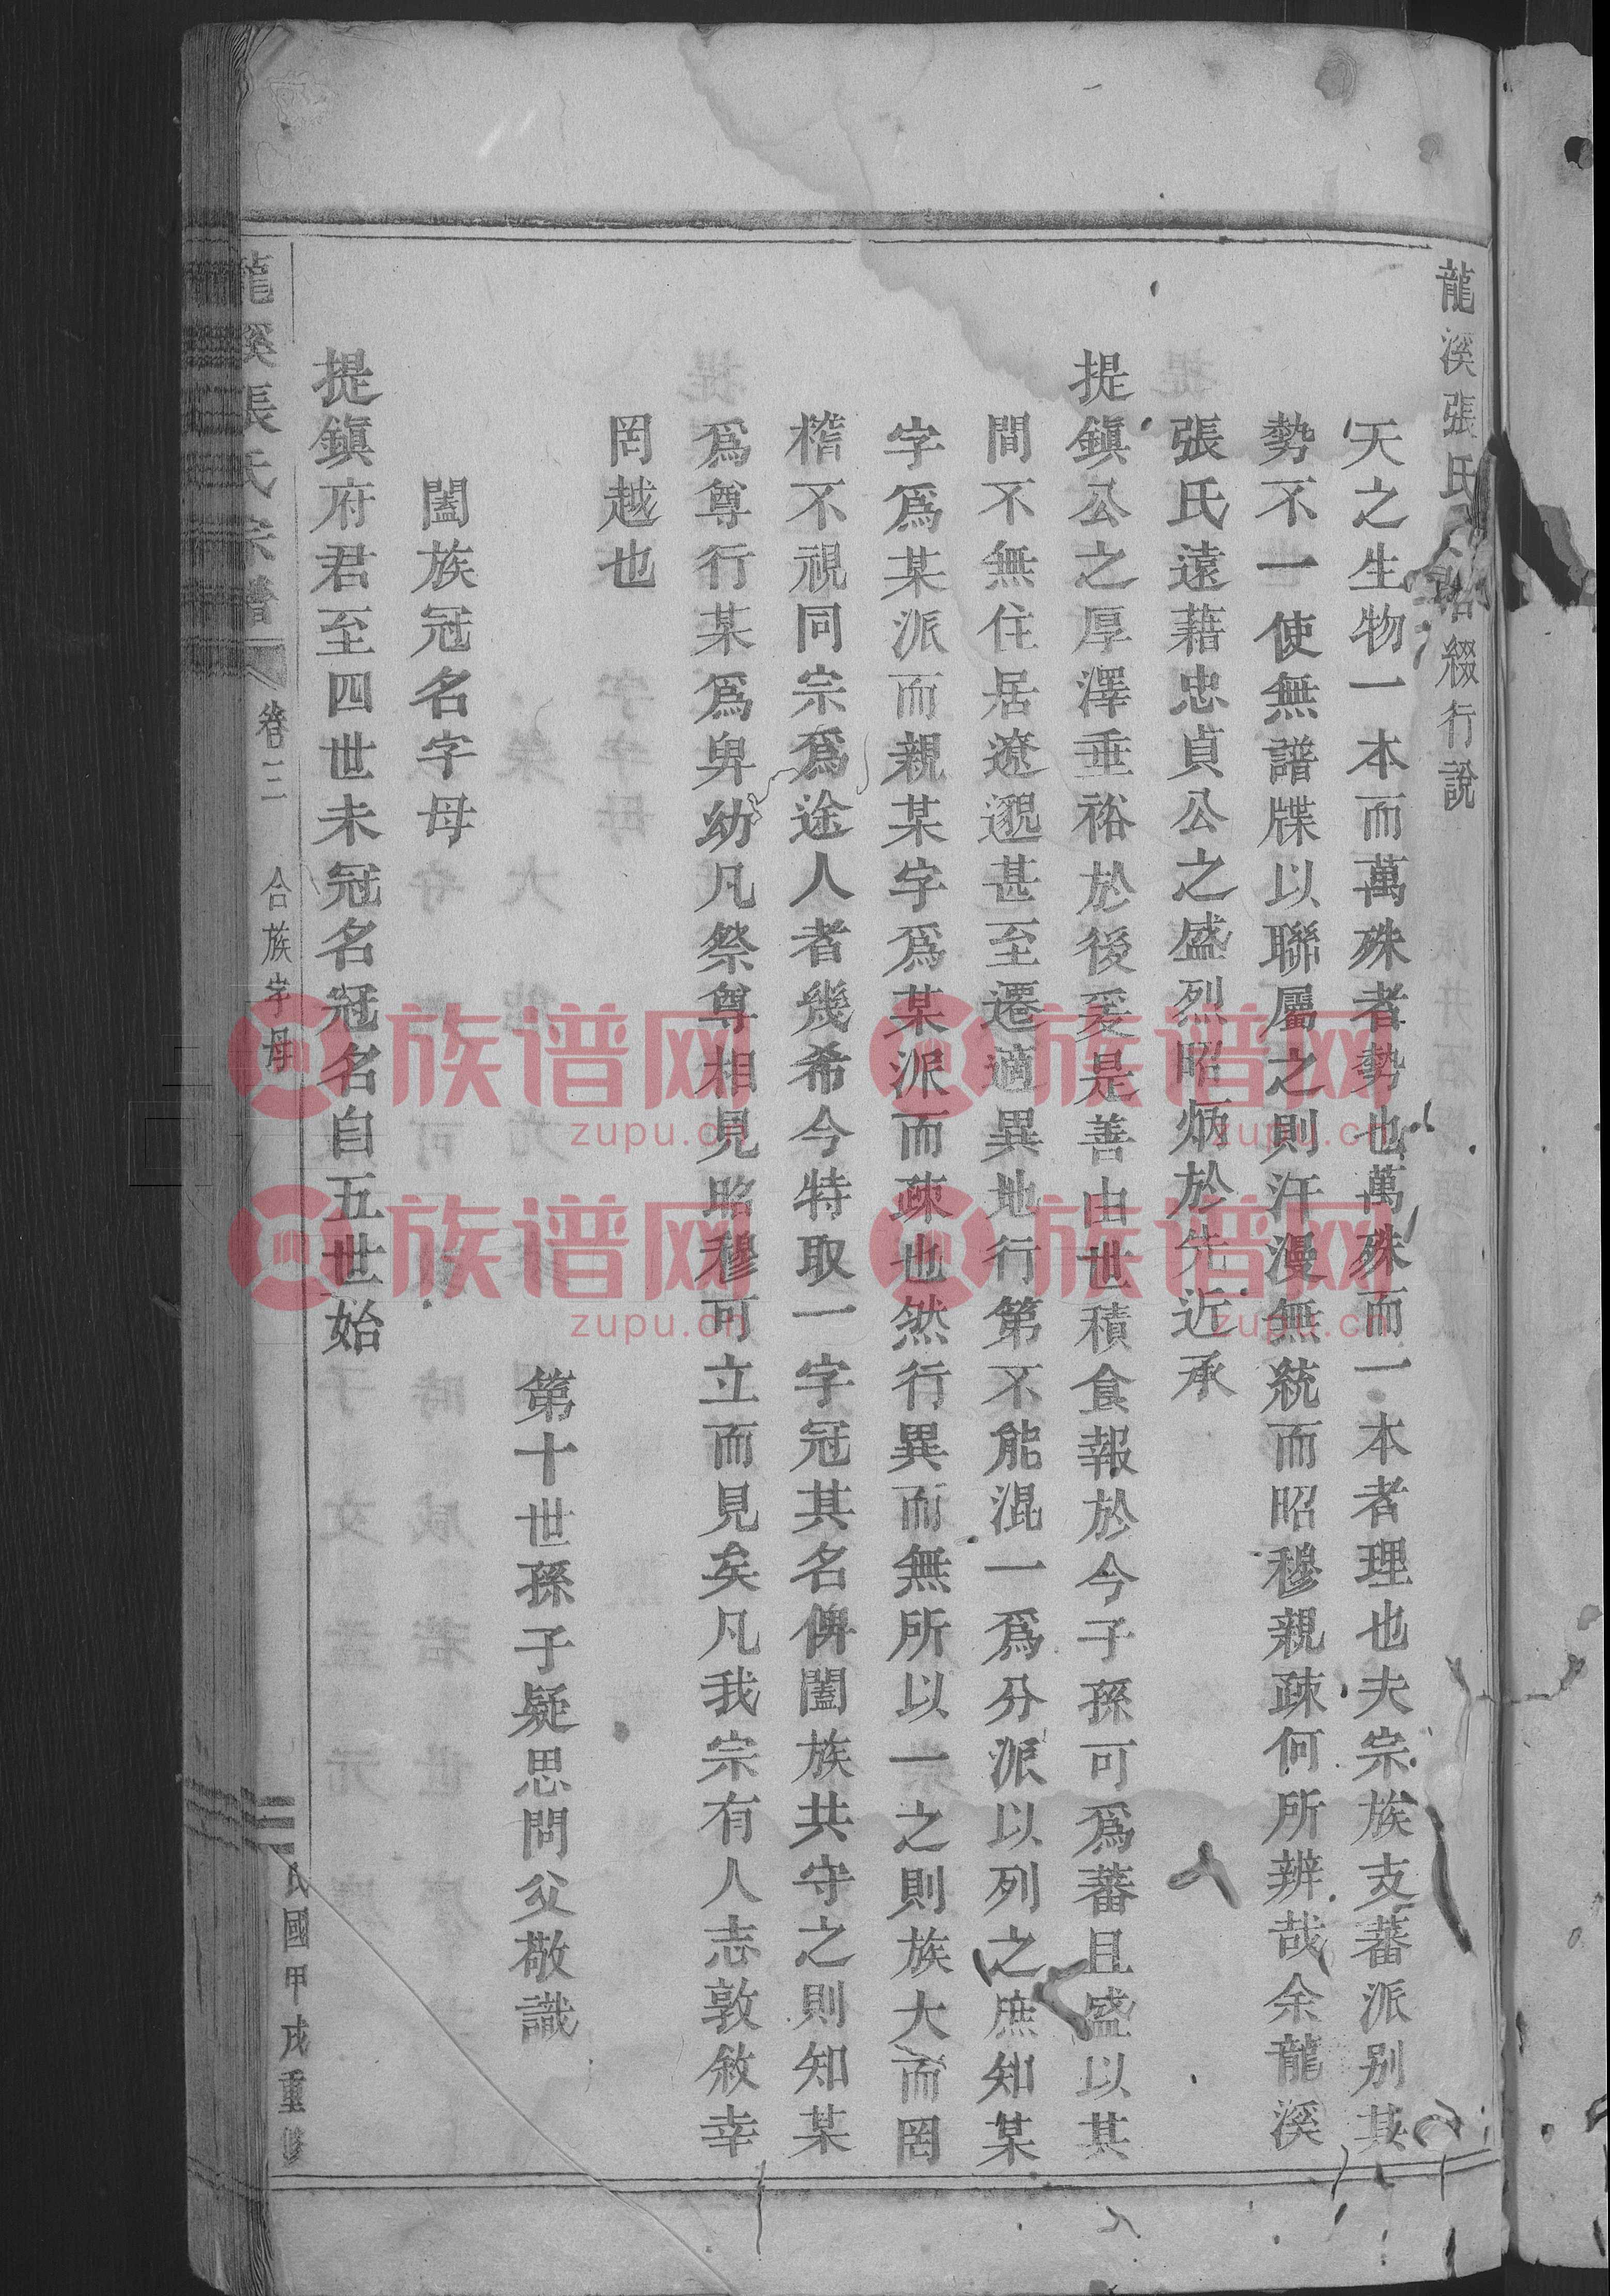 龍溪張氏綴行說
天之生物一本而萬殊者勢也萬殊而一本者理也夫宗族支蕃派别其
勢不一使無譜牒以聯屬之則汗漫無統而昭穆親疎何所辨哉余龍溪
張氏遠藉忠貞公之盛烈昭炳於先近承
提鎮公之厚澤垂裕於後爰是善由世積食報於今子孫可爲蕃且盛以其
間不無住居遼邈甚至遷適異地行第不能混一爲分派以列之庶知某
字爲某派而親某字爲某派而疎也然行異而無所以一之則族大而罔
稽不視同宗爲途人者幾希今特取一字冠其名俾闔族共守之則知某
爲尊行某爲卑幼凡祭尊相見昭穆可立而見矣凡我宗有人志敦敘幸
罔越也
第十世孫子疑思問父敬識
闔族冠名字母
提鎮府君至四世未冠名冠名自五世始
龍溪張氏宗譜
卷三
合族字母
民國甲戌重修
族谱网
zupu.cn
族谱网
zupu.cn
族谱网
zupu.cn
族谱网
zupu.cn